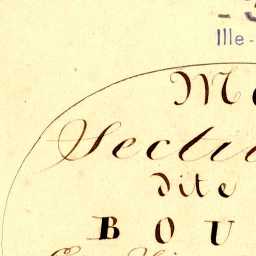 Ille-
M
Secti
dite
BOU